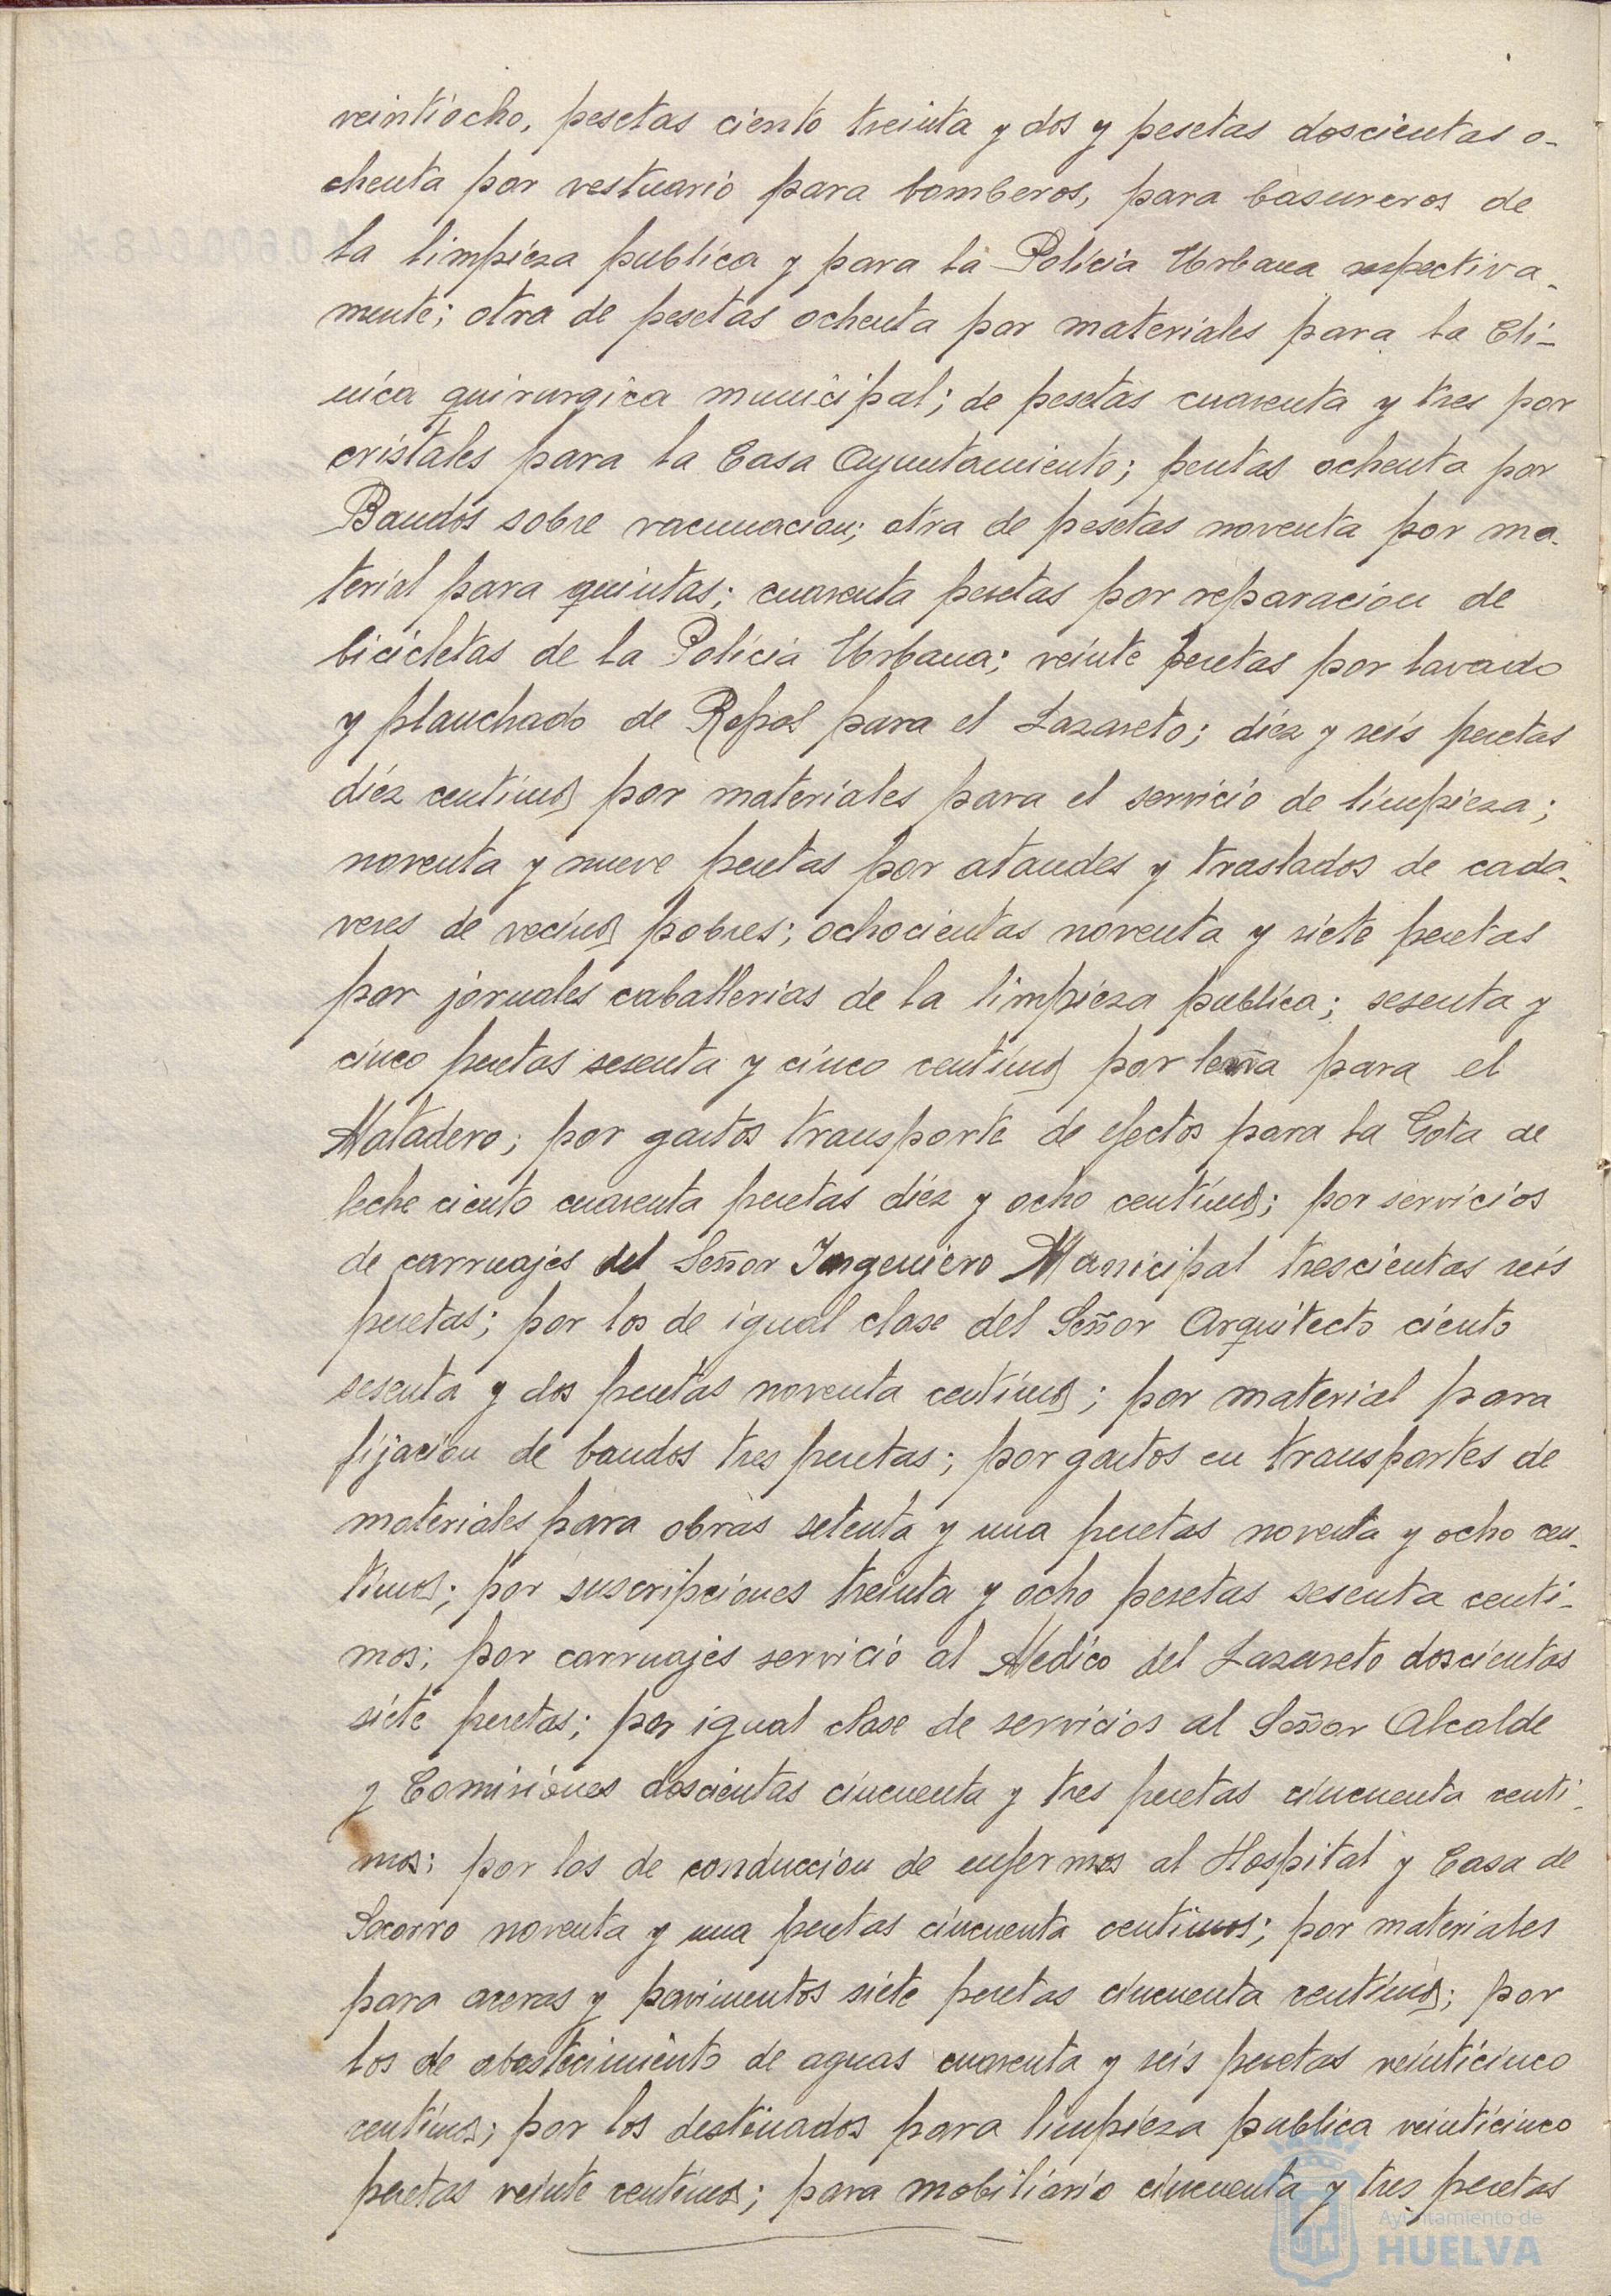 veintiocho, pesetas ciento treinta y dos y pesetas doscientas o-
chenta por vestuario para bomberos, para basureros de
la limpieza publica y para la Policia Urbana respectiva-
mente; otra de pesetas ochenta por materiales para la Cli-
nica quirurgica municipal; de pesetas cuarenta y tres por
cristales para la Casa Ayuntamiento; pesetas ochenta por
Bandos sobre vacunacion; otra de pesetas noventa por ma-
terial para quintas; cuarenta pesetas por reparacion de
bicicletas de la Policia Urbana; veinte pesetas por lavado
y planchado de Ropas para el Lazareto; diez y seis pesetas
diez centimos por materiales para el servicio de limpieza;
noventa y nueve pesetas por ataudes y traslados de cada-
veres de vecinos pobres; ochocientas noventa y siete pesetas
por jornales caballerias de la limpieza publica; sesenta y
cinco pesetas sesenta y cinco centimos por leña para el
Matadero; por gastos transporte de efectos para la Gota de
leche ciento cuarenta pesetas diez y ocho centimos; por servicios
de carruajes del Señor Ingeniero Municipal trescientas seis
pesetas; por los de igual clase del Señor Arquitecto ciento
sesenta y dos pesetas noventa centimos; por material para
fijacion de bandos tres pesetas; por gastos en transportes de
materiales para obras setenta y una pesetas noventa y ocho cen-
timos; por suscripciones treinta y ocho pesetas sesenta centi-
mos; por carruajes servicio al Medico del Lazareto doscientas
siete pesetas; por igual clase de servicios al Señor Alcalde
y Comisiones doscientas cincuenta y tres pesetas cincuenta centi-
mos; por los de conduccion de enfermos al Hospital y Casa de
Socorro noventa y una pesetas cincuenta centimos; por materiales
para aceras y pavimentos siete pesetas cincuenta centimos; por
los de abastecimiento de aguas cuarenta y seis pesetas veinticinco
centimos; por los destinados para limpieza publica veinticinco
pesetas veinte centimos; para mobiliario cincuenta y tres pesetas
Ayuntamiento de
HUELVA